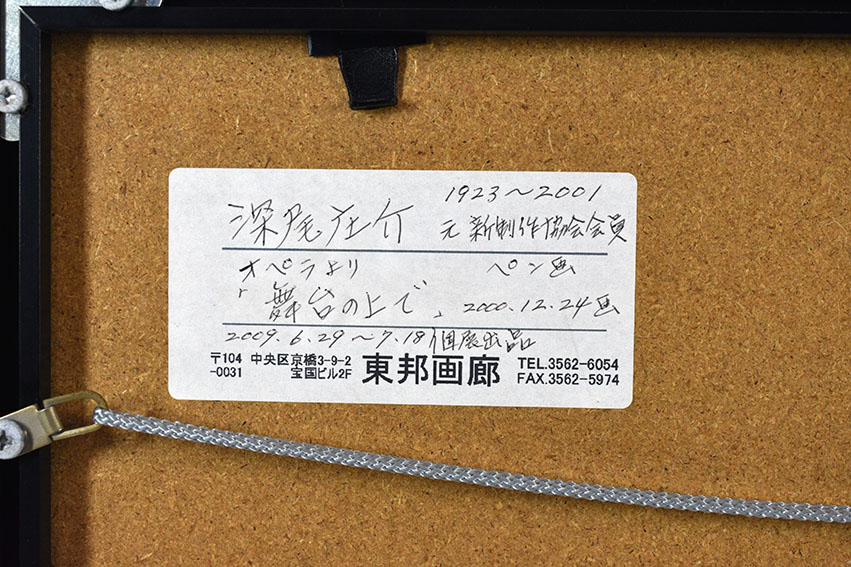 深尾庄介 1923～2001
元新制作協会会員
オペラより ペン画
「舞台の上で」 2000.12.24画
2009.6.29～7.18個展出品
〒104-0031 中央区京橋3-9-2 宝国ビル2F 東邦画廊 TEL.3562-6054
FAX.3562-5974